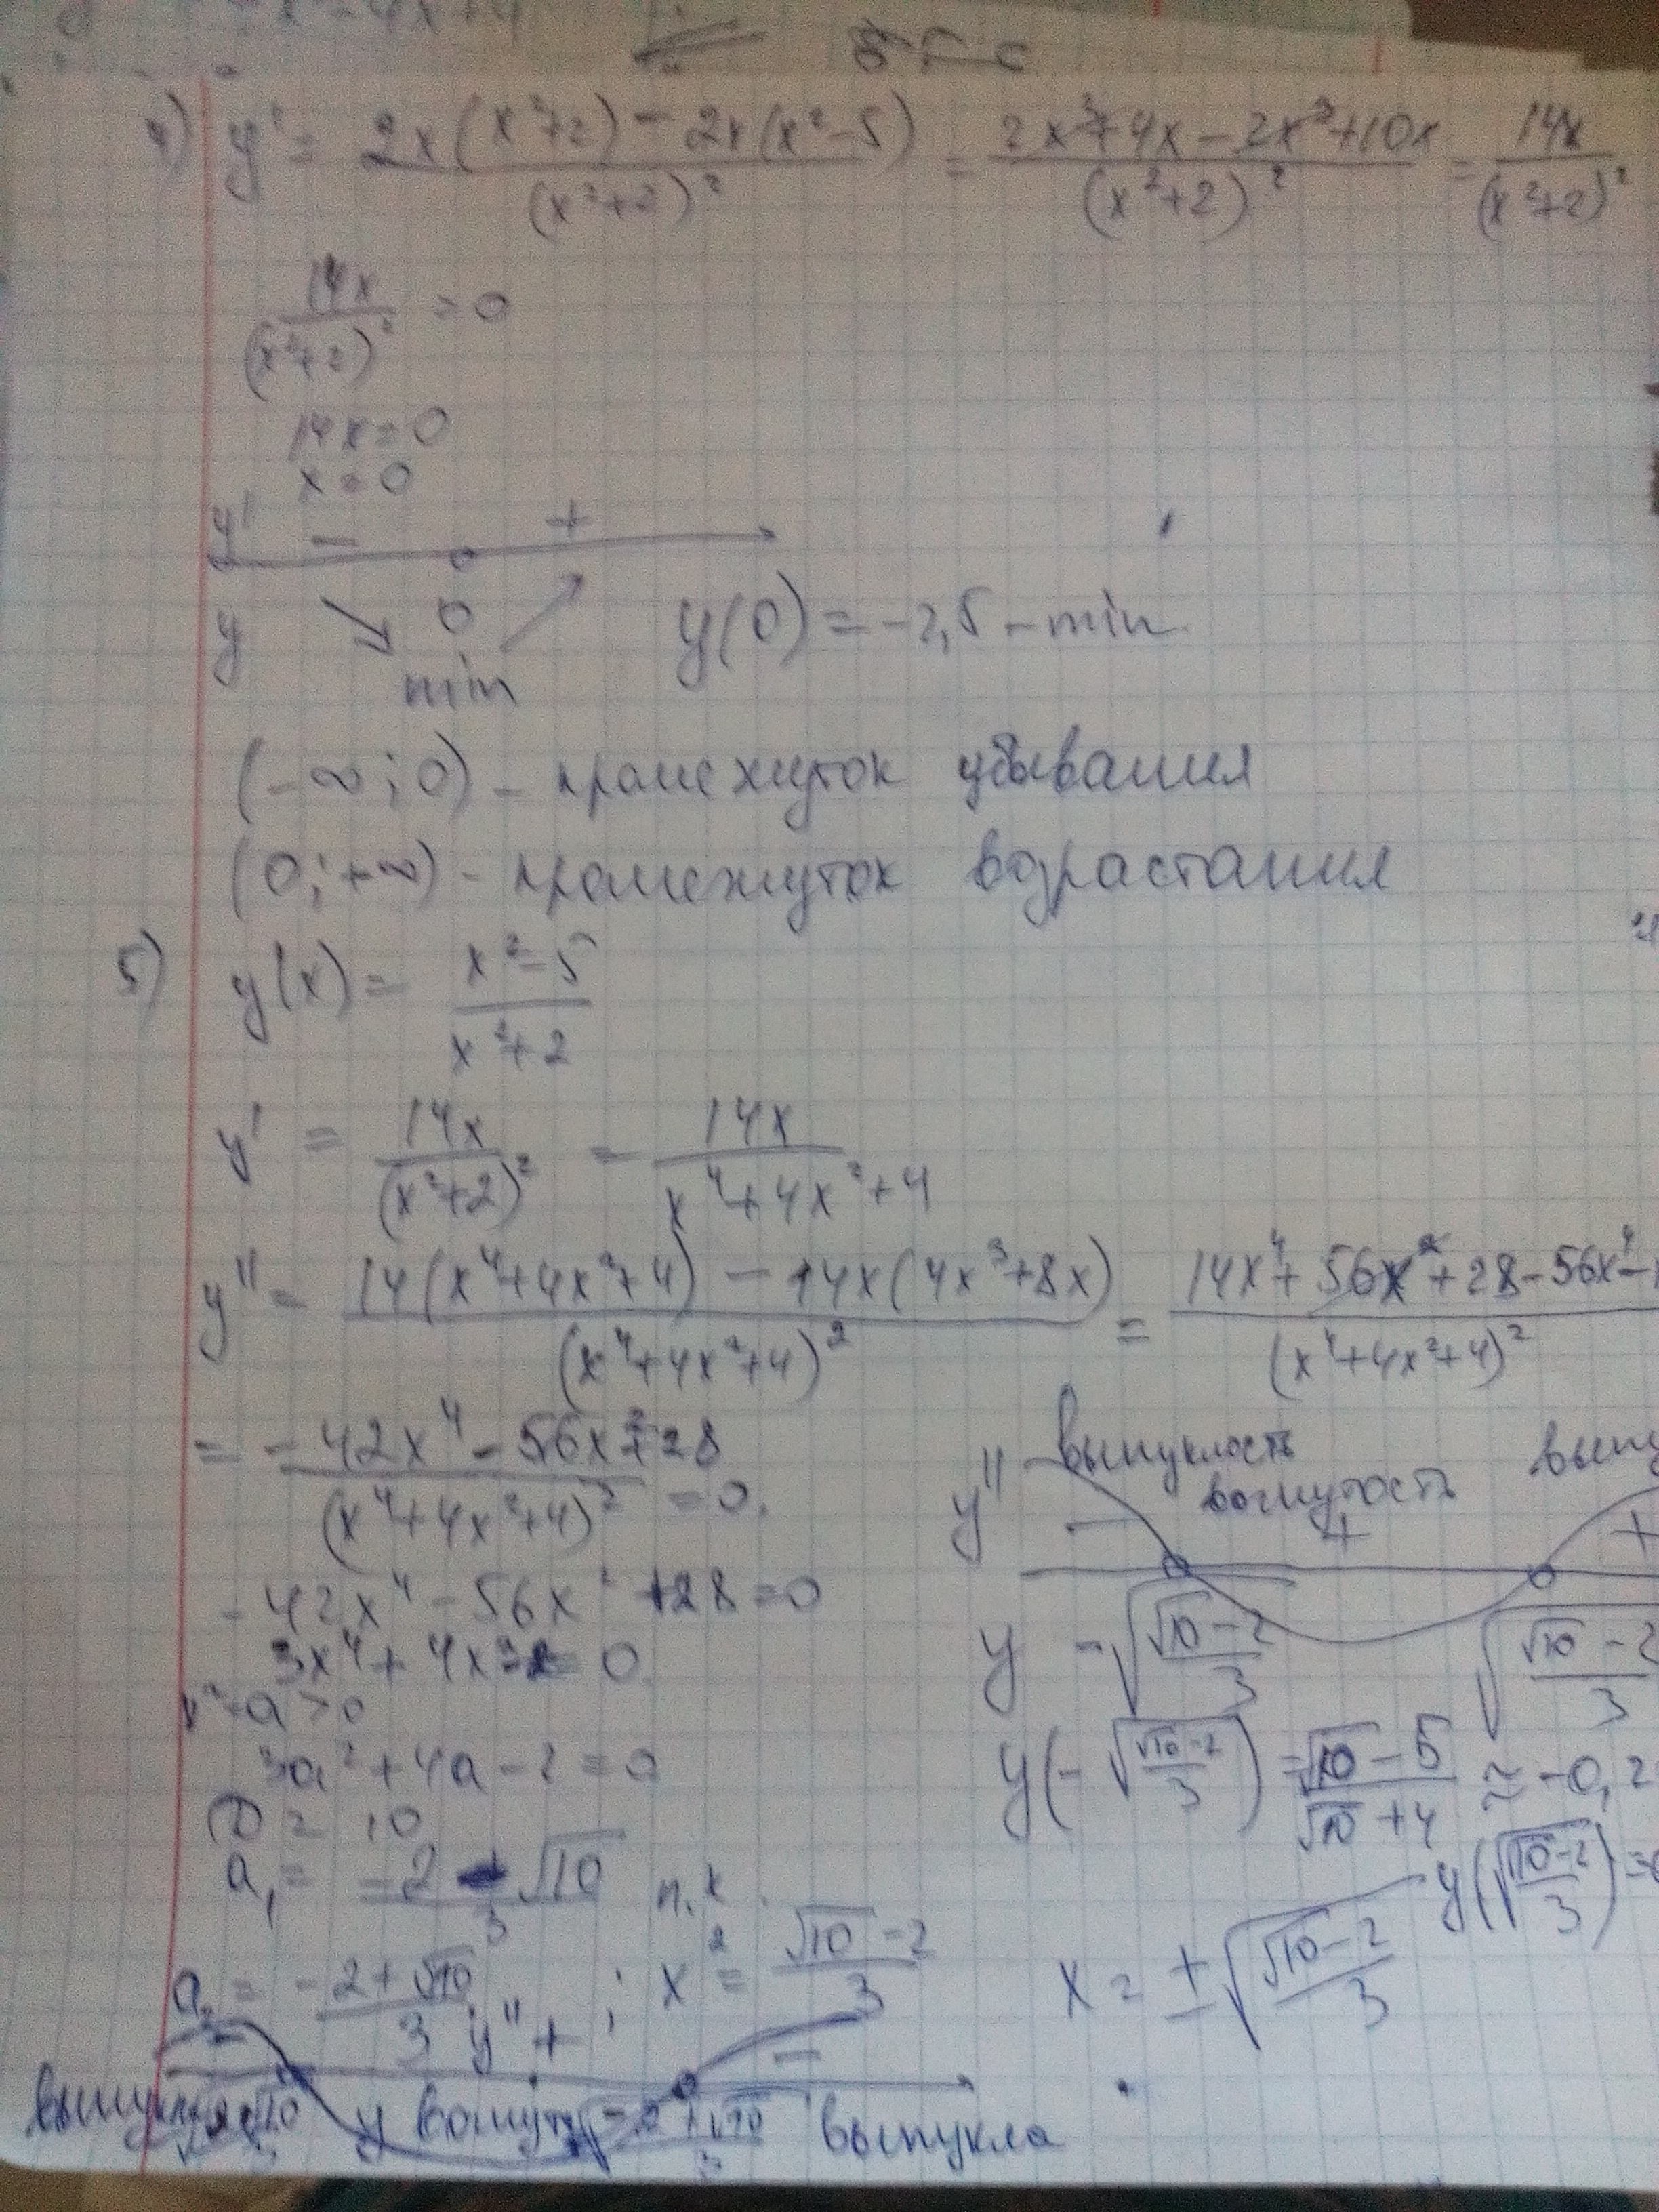 4) y' = (2x(x²+2) - 2x(x²-5))/(x²+2)² = (2x³+4x-2x³+10x)/(x²+2)² = 14x/(x²+2)²
14x/(x²+2)² = 0
14x=0
x=0
y' - +
y 0 min y(0) = -2,5 - min
(-∞; 0) - промежуток убывания
(0; +∞) - промежуток возрастания
5) y(x) = (x²-5)/(x²+2)
y' = 14x/(x²+2)² = 14x/(x⁴+4x²+4)
y'' = (14(x⁴+4x²+4) - 14x(4x³+8x))/(x⁴+4x²+4)² = (14x⁴+56x²+28-56x⁴-
(x⁴+4x²+4)²
= (-42x⁴-56x²+28)/(x⁴+4x²+4)² = 0.
-42x⁴-56x²+28=0
3x⁴+4x²-2=0
x²=a>0
3a²+4a-2=0
D = 10
a₁ = (-2-√10)/3 п.к.
a₂ = (-2+√10)/3 ; x² = (√10-2)/3 x = ±√((√10-2)/3)
y'' выпуклость вогнутость
- + +
y -√((√10-2)/3) √((√10-2)/3)
y(-√((√10-2)/3)) = (√10-5)/(√10+4) ≈ -0,2
y(√((√10-2)/3)) =
- y'' + -
y вогнута выпукла